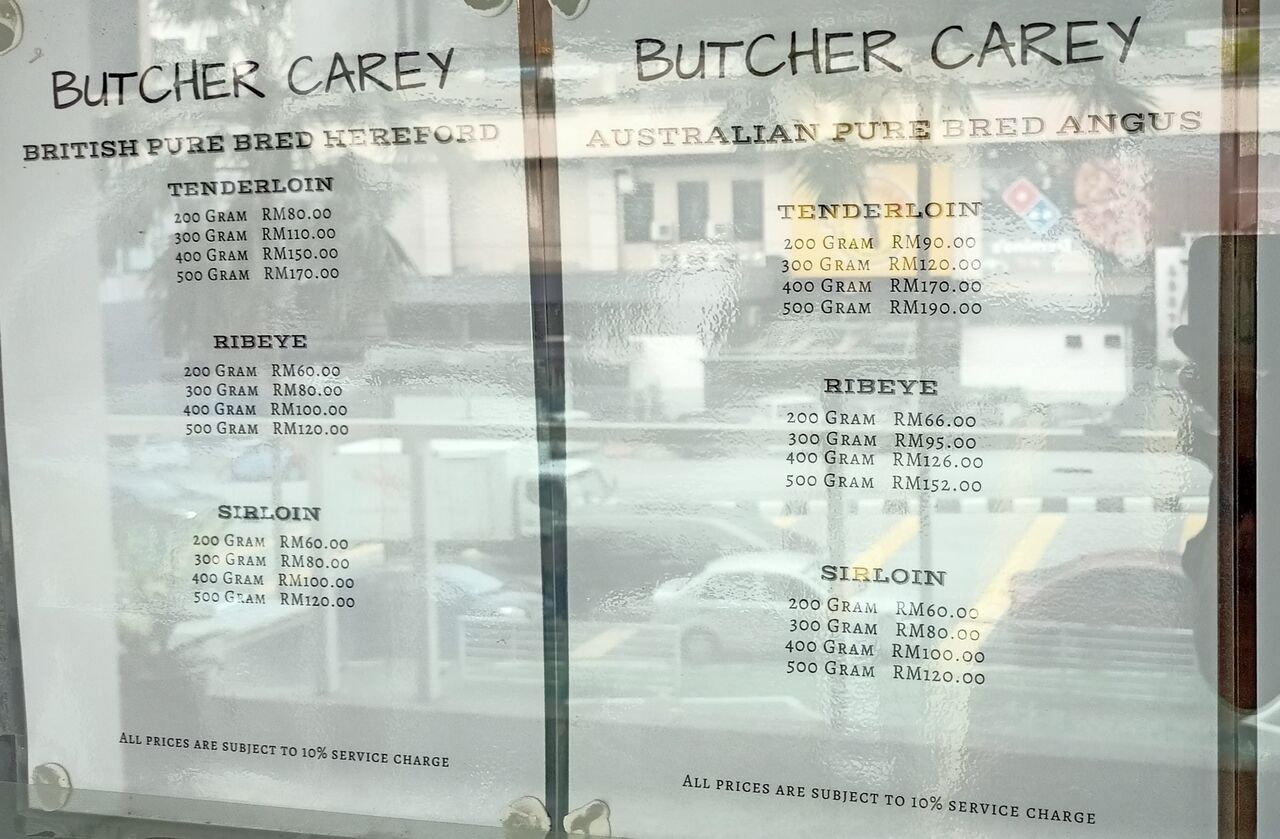 BUTCHER CAREY
BRITISH PURE BRED HEREFORD
TENDERLOIN
200 GRAM RM80.00
300 GRAM RM110.00
400 GRAM RM150.00
500 GRAM RM170.00
RIBEYE
200 GRAM RM60.00
300 GRAM RM80.00
400 GRAM RM100.00
500 GRAM RM120.00
SIRLOIN
200 GRAM RM60.00
300 GRAM RM80.00
400 GRAM RM100.00
500 GRAM RM120.00
ALL PRICES ARE SUBJECT TO 10% SERVICE CHARGE
BUTCHER CAREY
AUSTRALIAN PURE BRED ANGUS
TENDERLOIN
200 GRAM RM90.00
300 GRAM RM120.00
400 GRAM RM170.00
500 GRAM RM190.00
RIBEYE
200 GRAM RM66.00
300 GRAM RM95.00
400 GRAM RM126.00
500 GRAM RM152.00
SIRLOIN
200 GRAM RM60.00
300 GRAM RM80.00
400 GRAM RM100.00
500 GRAM RM120.00
ALL PRICES ARE SUBJECT TO 10% SERVICE CHARGE